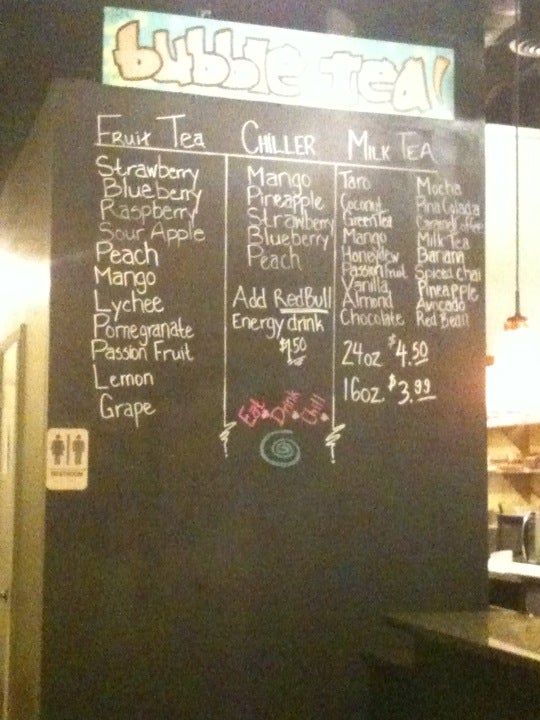 bubble tea!
Fruit Tea
Strawberry
Blueberry
Raspberry
Sour Apple
Peach
Mango
Lychee
Pomegranate
Passion Fruit
Lemon
Grape
CHILLER
Mango
Pineapple
Strawberry
Blueberry
Peach
Add RedBull
Energy drink
$1.50
Eat. Drink. Chill.
MILK TEA
Taro
Coconut
Green Tea
Mango
Honeydew
Passionfruit
Vanilla
Almond
Chocolate
Mocha
Pina Colada
Caramel Coffee
Milk Tea
Banana
Spiced Chai
Pineapple
Avocado
Red Bean
24oz $4.50
16oz. $3.99
RESTROOM